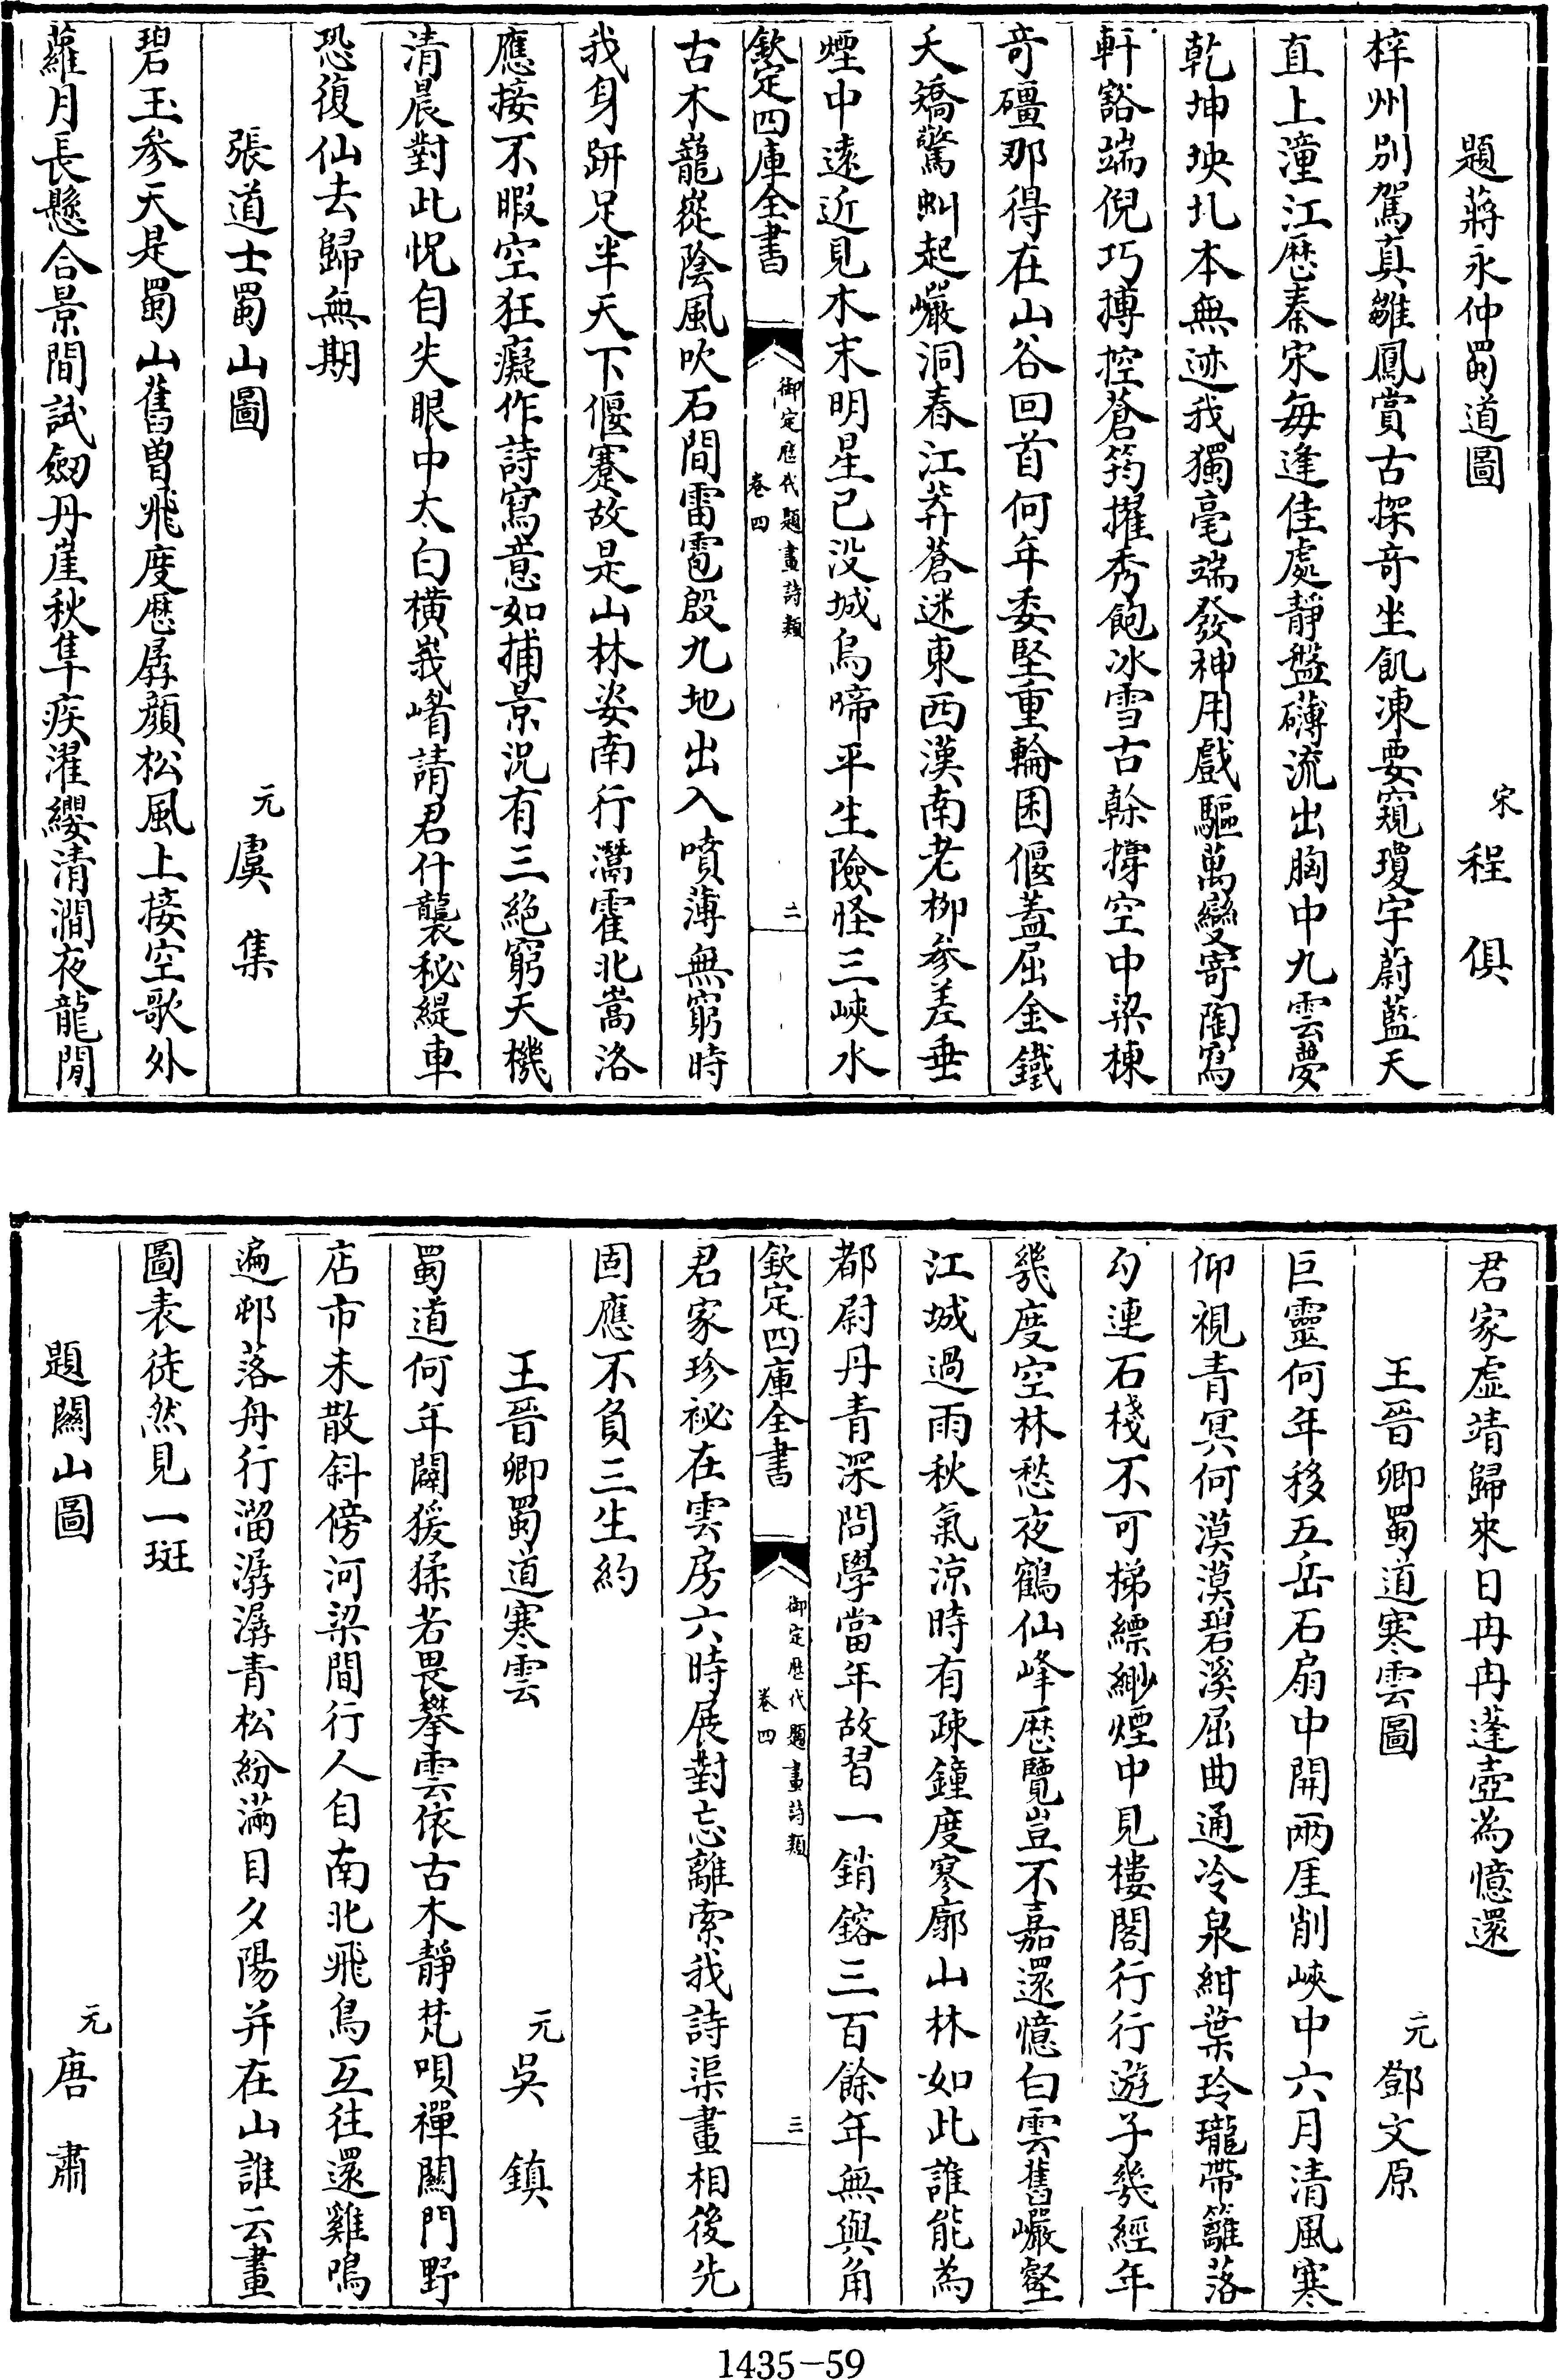 題蔣永仲蜀道圖　宋程俱
梓州別駕真雛鳳賞古探奇坐飢凍要窺瓊宇蔚藍天
直上潼江歷秦宋每逢佳處靜盤礴流出胸中九雲夢
乾坤坱圠本無迹我獨毫端發神用戲驅萬變寄陶寫
軒豁端倪巧摶控蒼筠擢秀飽冰雪古榦撐空中梁棟
奇礓那得在山谷回首何年委堅重輪囷偃蓋屈金鐵
夭矯驚虯起巖洞春江莽蒼迷東西漢南老柳參差垂
煙中遠近見木末明星已没城烏啼平生險怪三峽水
欽定四庫全書
御定歷代題畫詩類
卷四
二
古木巃嵸陰風吹石間雷雹殷九地出入噴薄無窮時
我身趼足半天下偃蹇故是山林姿南行灊霍北嵩洛
應接不暇空狂癡作詩寫意如捕景況有三絶窮天機
清晨對此怳自失眼中太白横峩嵋請君什襲秘緹車
恐復仙去歸無期
張道士蜀山圖　元虞集
碧玉參天是蜀山舊曽飛度歷孱顏松風上接空歌外
蘿月長懸合景間試劔丹崖秋隼疾濯纓清澗夜龍閒
君家虛靖歸來日冉冉蓬壺為憶還
王晉卿蜀道寒雲圖　元鄧文原
巨靈何年移五岳石扇中開兩厓削峽中六月清風寒
仰視青冥何漠漠碧溪屈曲通冷泉紺葉玲瓏帶籬落
勾連石棧不可梯縹緲煙中見樓閣行行遊子幾經年
幾度空林愁夜鶴仙峰歷覽豈不嘉還憶白雲舊巖壑
江城過雨秋氣涼時有疎鐘度寥廓山林如此誰能為
都尉丹青深問學當年故習一銷鎔三百餘年無與角
欽定四庫全書
御定歷代題畫詩類
卷四
三
君家珍祕在雲房六時展對忘離索我詩渠畫相後先
固應不負三生約
王晉卿蜀道寒雲　元吳鎮
蜀道何年闢猨猱若畏攀雲依古木靜梵唄禪關門野
店市未散斜傍河梁間行人自南北飛鳥互往還雞鳴
遍邨落舟行溜潺潺青松紛滿目夕陽并在山誰云畫
圖表徒然見一斑
題關山圖　元唐肅
1435-59